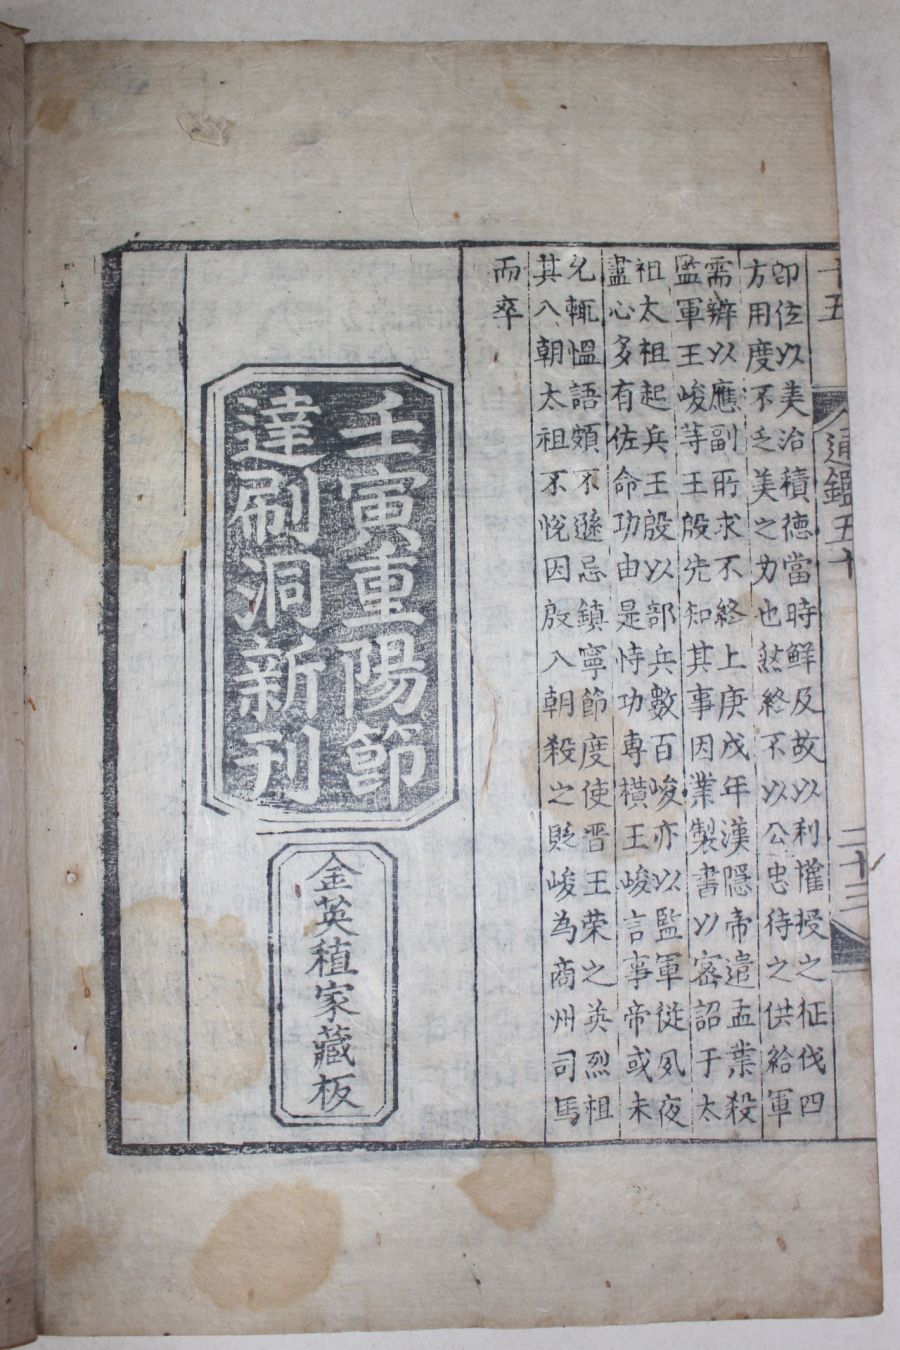 十五
通鑑五十
二十三
即位以美治積德當時鮮及故以利權授之征伐四
方用度不乏美之力也然終不以公忠待之供給軍
需辦以應副所求不終上庚戌年漢隱帝遣孟業殺
監軍王峻等王殷先知其事因業製書以密詔于太
祖太祖起兵王殷以部兵數百峻亦以監軍從夙夜
盡心多有佐命功由是恃功專橫王峻言事帝或未
允輒慍語頗不遜忌鎮寧節度使晋王荣之英烈祖
其入朝太祖不悅因殷入朝殺之貶峻為商州司馬
而卒
壬寅重陽節
達刷洞新刊
金英稙家藏板